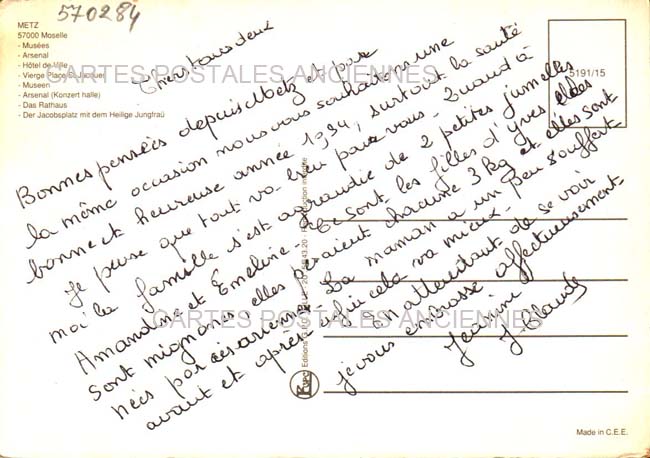 570284
METZ
57000 Moselle
- Musées
- Arsenal
- Hôtel de Ville
- Vierge Place St Jacques
- Museen
- Arsenal (Konzert halle)
- Das Rathaus
- Der Jacobsplatz mit dem Heilige Jungfraü
CARTES POSTALES ANCIENNES
5191/15
Chers tous deux
Bonnes pensées depuis Metz et par
la même occasion nous vous souhaitons une
bonne et heureuse année 1994, surtout la santé
Je pense que tout va bien pour vous. Quand à
moi la famille s'est agrandie de 2 petites jumelles
Amandine et Emeline. Ce sont les filles d'Yves elles
sont mignones elles pesaient chacune 3 kg et elles sont
nées par césarienne. La maman a un peu souffert
avant et après mais cela va mieux.
En attendant de se voir
je vous embrasse affectueusement
J. Claude
CARTES POSTALES ANCIENNES
Made in C.E.E.